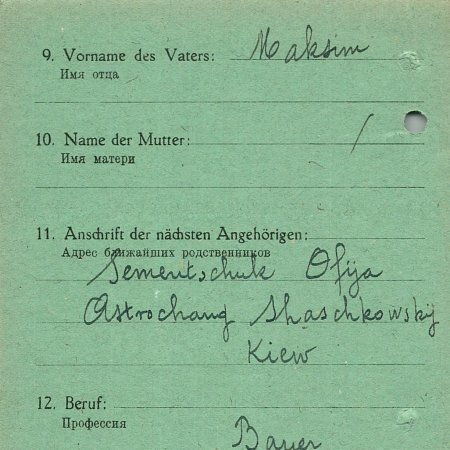 9. Vorname des Vaters: Maksim
Имя отца
10. Name der Mutter: /
Имя матери
11. Anschrift der nächsten Angehörigen:
Адрес ближайших родственников
Sementschuk Ofija
Astrochang Shaschkowskij
Kiew
12. Beruf:
Профессия
Bauer